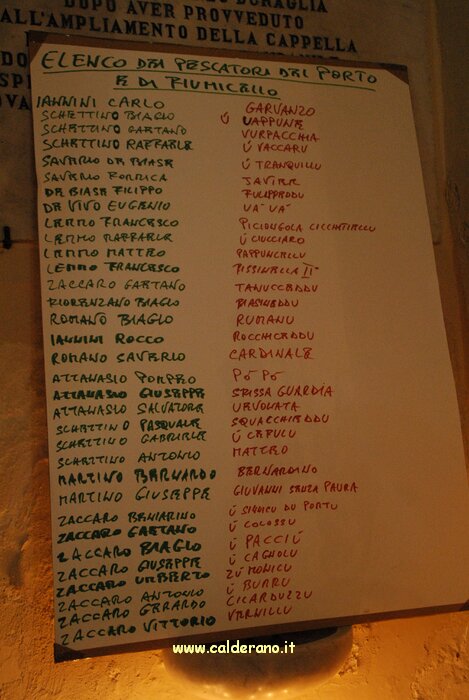 DOPO AVER PROVVEDUTO
ALL'AMPLIAMENTO DELLA CAPPELLA
ELENCO DEI PESCATORI DEL PORTO
E DI FIUMICELLO
IANNINI CARLO GARVANZO
SCHETTINO BIAGIO Ú UAPPUNE
SCHETTINO GAETANO VURPACCHIA
SCHETTINO RAFFAELE Ú VACCARU
SAVERIO DE BIASE Ú TRANQUILLU
SAVERIO FORNICA SAVIERE
DE BIASE FILIPPO FULIPPEDDU
DE VIVO EUGENIO VA' VA'
LEMMO FRANCESCO PICIONGOLA CICCHITIELLU
LEMMO RAFFAELE Ú CIUCCIARO
LEMMO MATTEO PAPPUNCELLU
LEMMO FRANCESCO PISSINELLA II°
ZACCARO GAETANO TANUCCEDDU
FIORENZANO BIAGIO BIASINEDDU
ROMANO BIAGIO RUMANU
IANNINI ROCCO ROCCHICEDDU
ROMANO SAVERIO CARDINALE
ATTANASIO POMPEO PÓ PÓ
ATTANASIO GIUSEPPE SPISSA GUARDIA
ATTANASIO SALVATORE URVOLATA
SCHETTINO PASQUALE SQUACCHIEDDU
SCHETTINO GABRIELE Ú CEFULU
SCHETTINO ANTONIO MATTEO
MARTINO BERNARDO BERNARDINO
MARTINO GIUSEPPE GIUVANNI SENZA PAURA
ZACCARO BENIAMINO Ú SINDICU DU PORTU
ZACCARO GAETANO Ú COLOSSU
ZACCARO BIAGIO Ú PACCIÚ
ZACCARO GIUSEPPE Ú CAGNOLU
ZACCARO UMBERTO ZÚ MONICU
ZACCARO ANTONIO Ú BURRU
ZACCARO GERARDO CICARDUZZU
ZACCARO VITTORIO VERNILLU
www.calderano.it